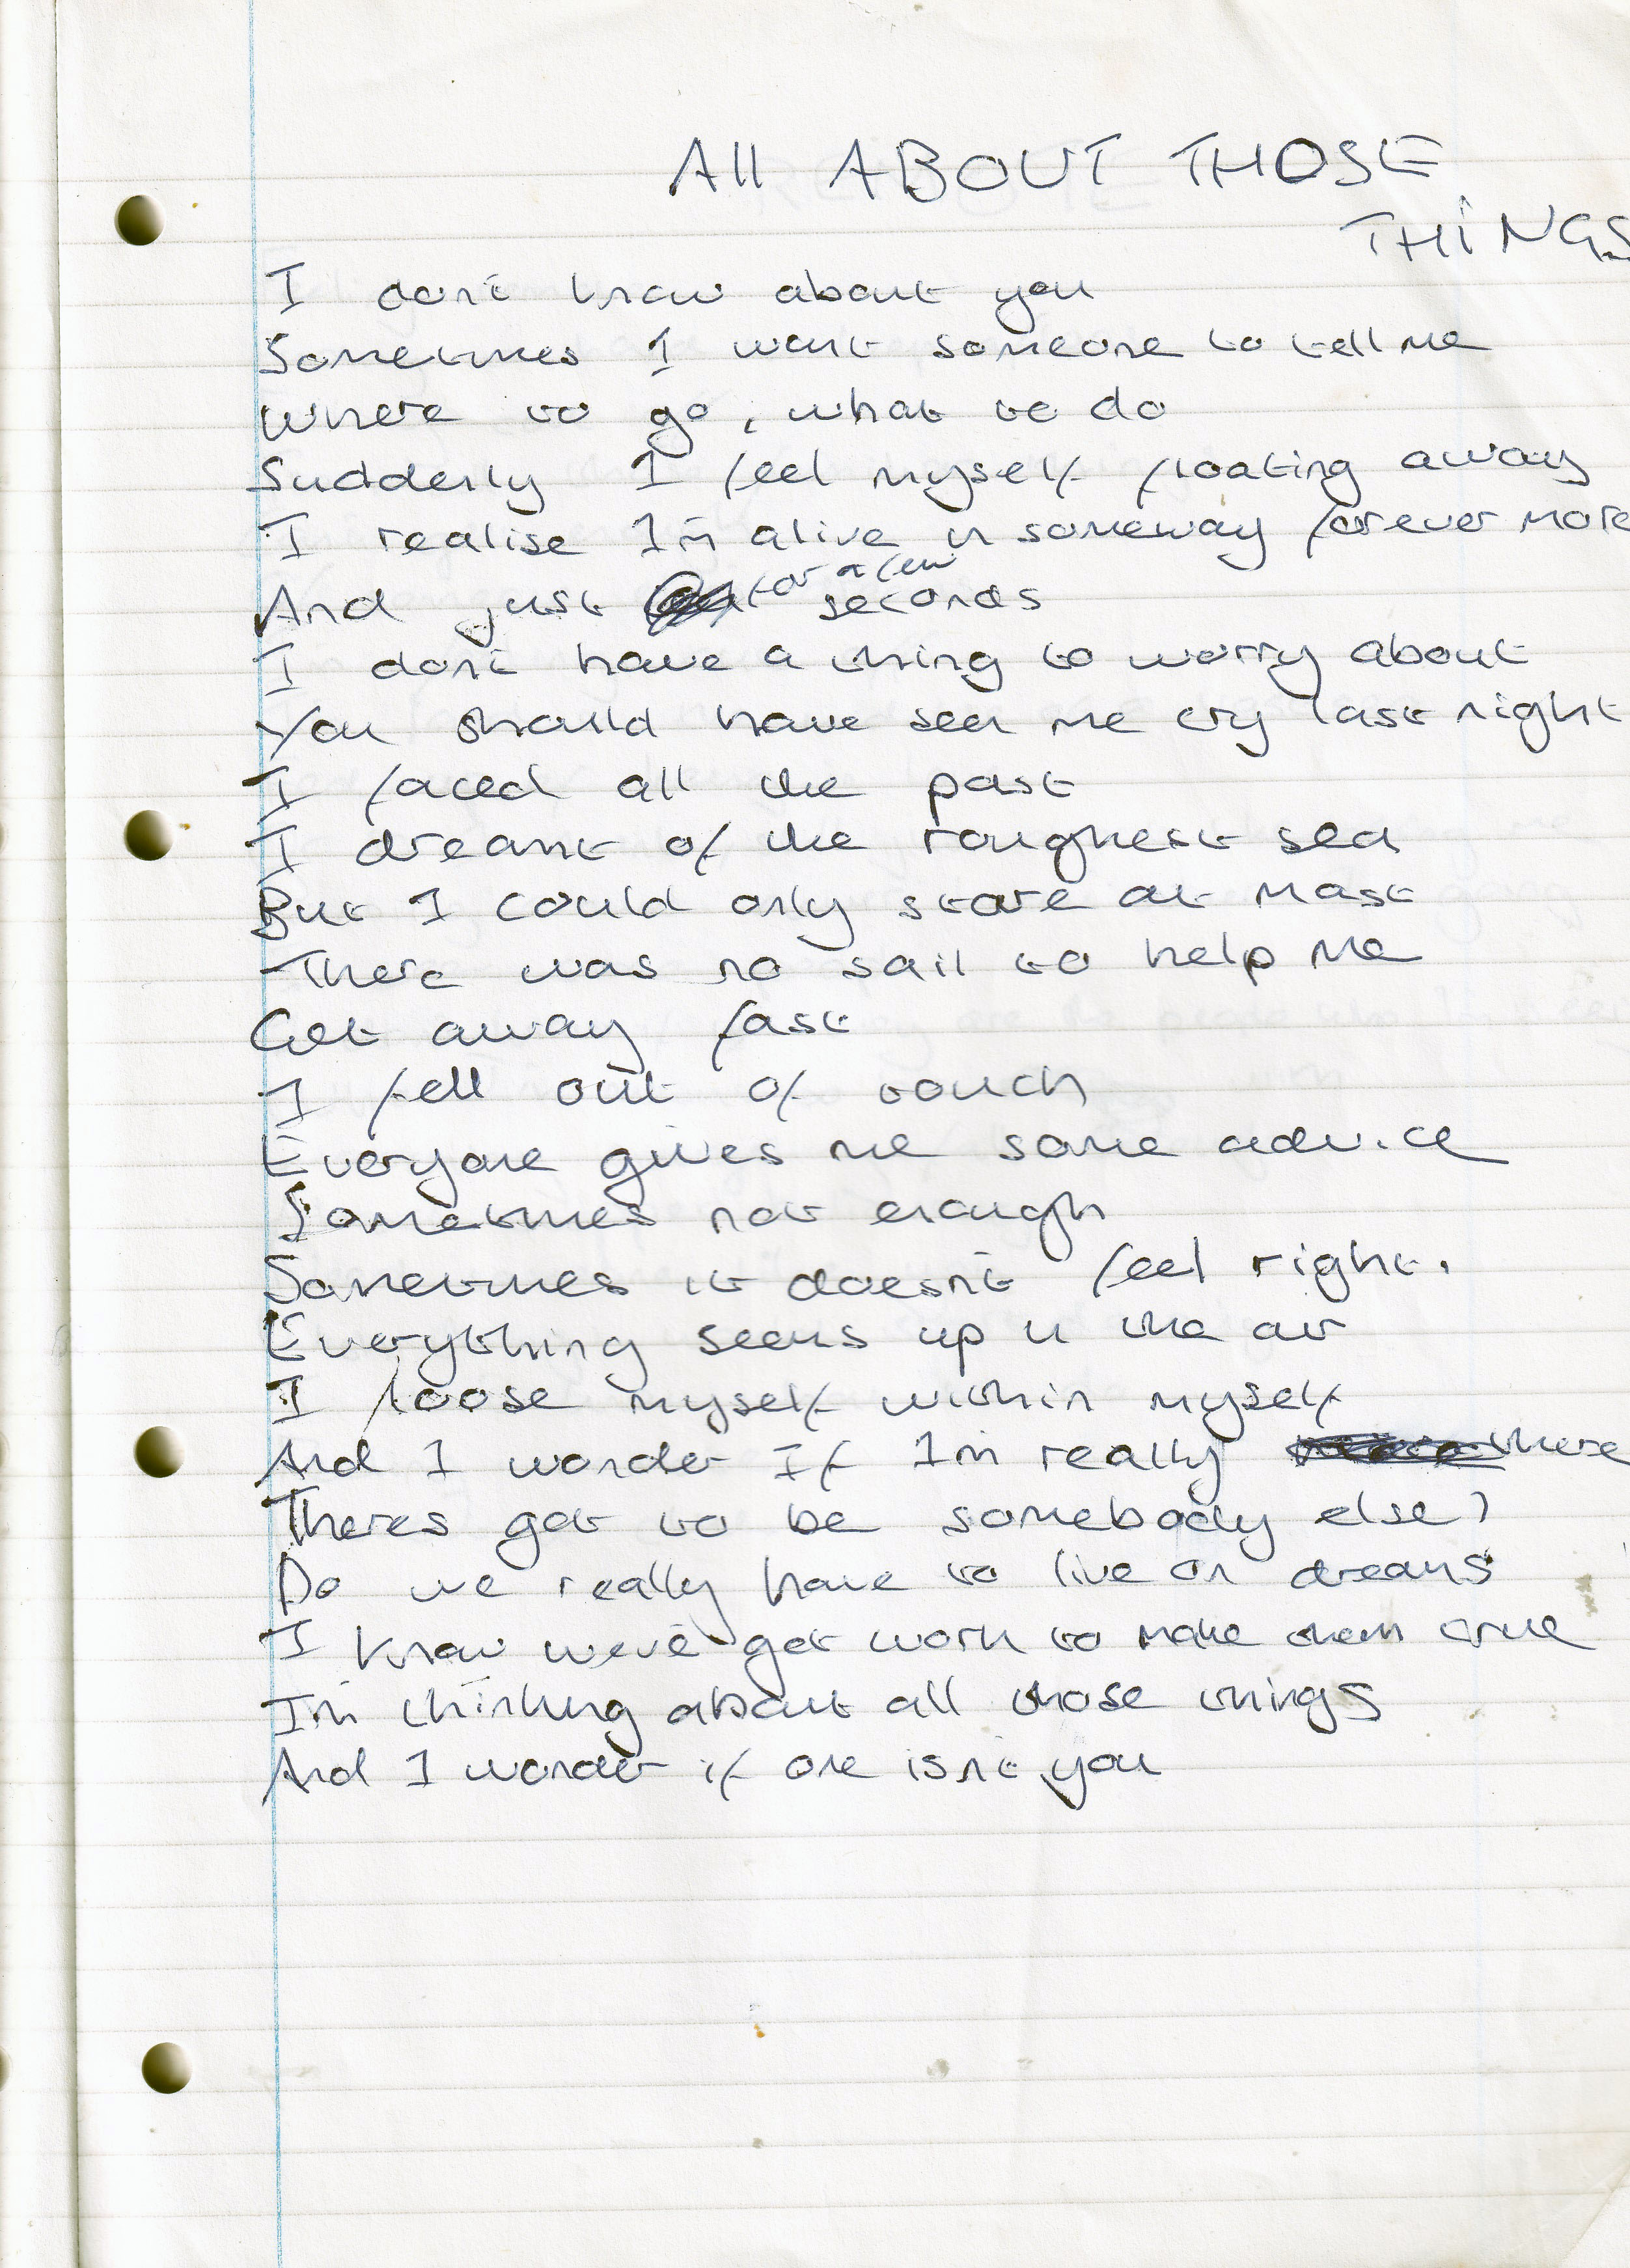 All ABOUT THOSE
THINGS
I don't know about you
Sometimes I want someone to tell me
Where to go, what to do
Suddenly I feel myself floating away
I realise I'm alive in someway forever more
And just for a few seconds
I don't have a thing to worry about
You should have seen me cry last night
I faced all the past
I dreamt of the roughest sea
But I could only stare at mast
There was no sail to help me
Get away fast
I fell out of touch
Everyone gives me some advice
Sometimes not enough
Sometimes it doesn't feel right.
Everything seems up in the air
I loose myself within myself
And I wonder If I'm really there
Theres got to be somebody else?
Do we really have to live on dreams
I know we've got work to make them true
I'm thinking about all those things
And I wonder if one isn't you